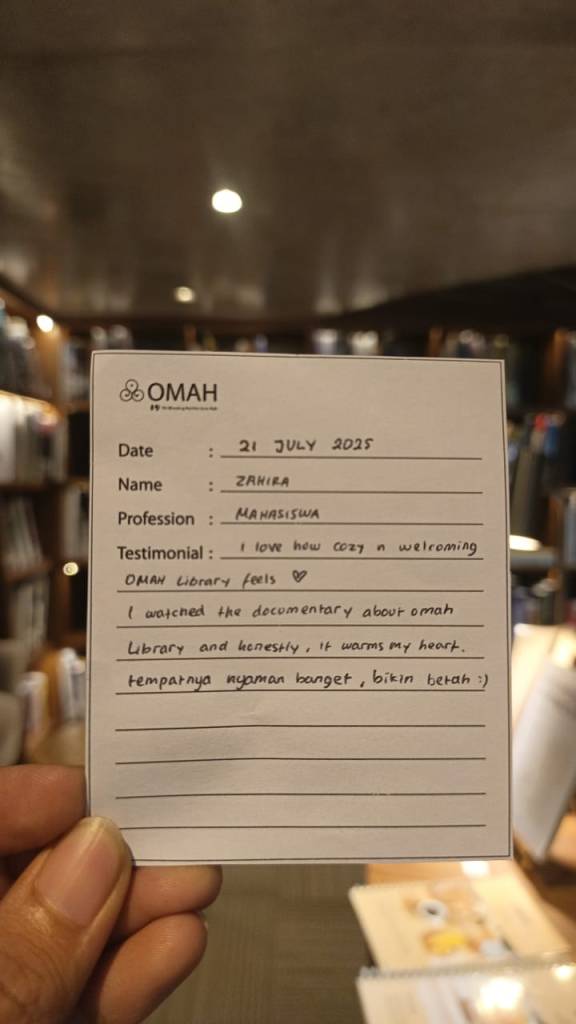 OMAH
Date : 21 JULY 2025
Name : ZAHIRA
Profession : MAHASISWA
Testimonial : I love how cozy n welcoming
OMAH Library feels ♡
I watched the documentary about omah
Library and honestly, it warms my heart.
tempatnya nyaman banget, bikin betah :)